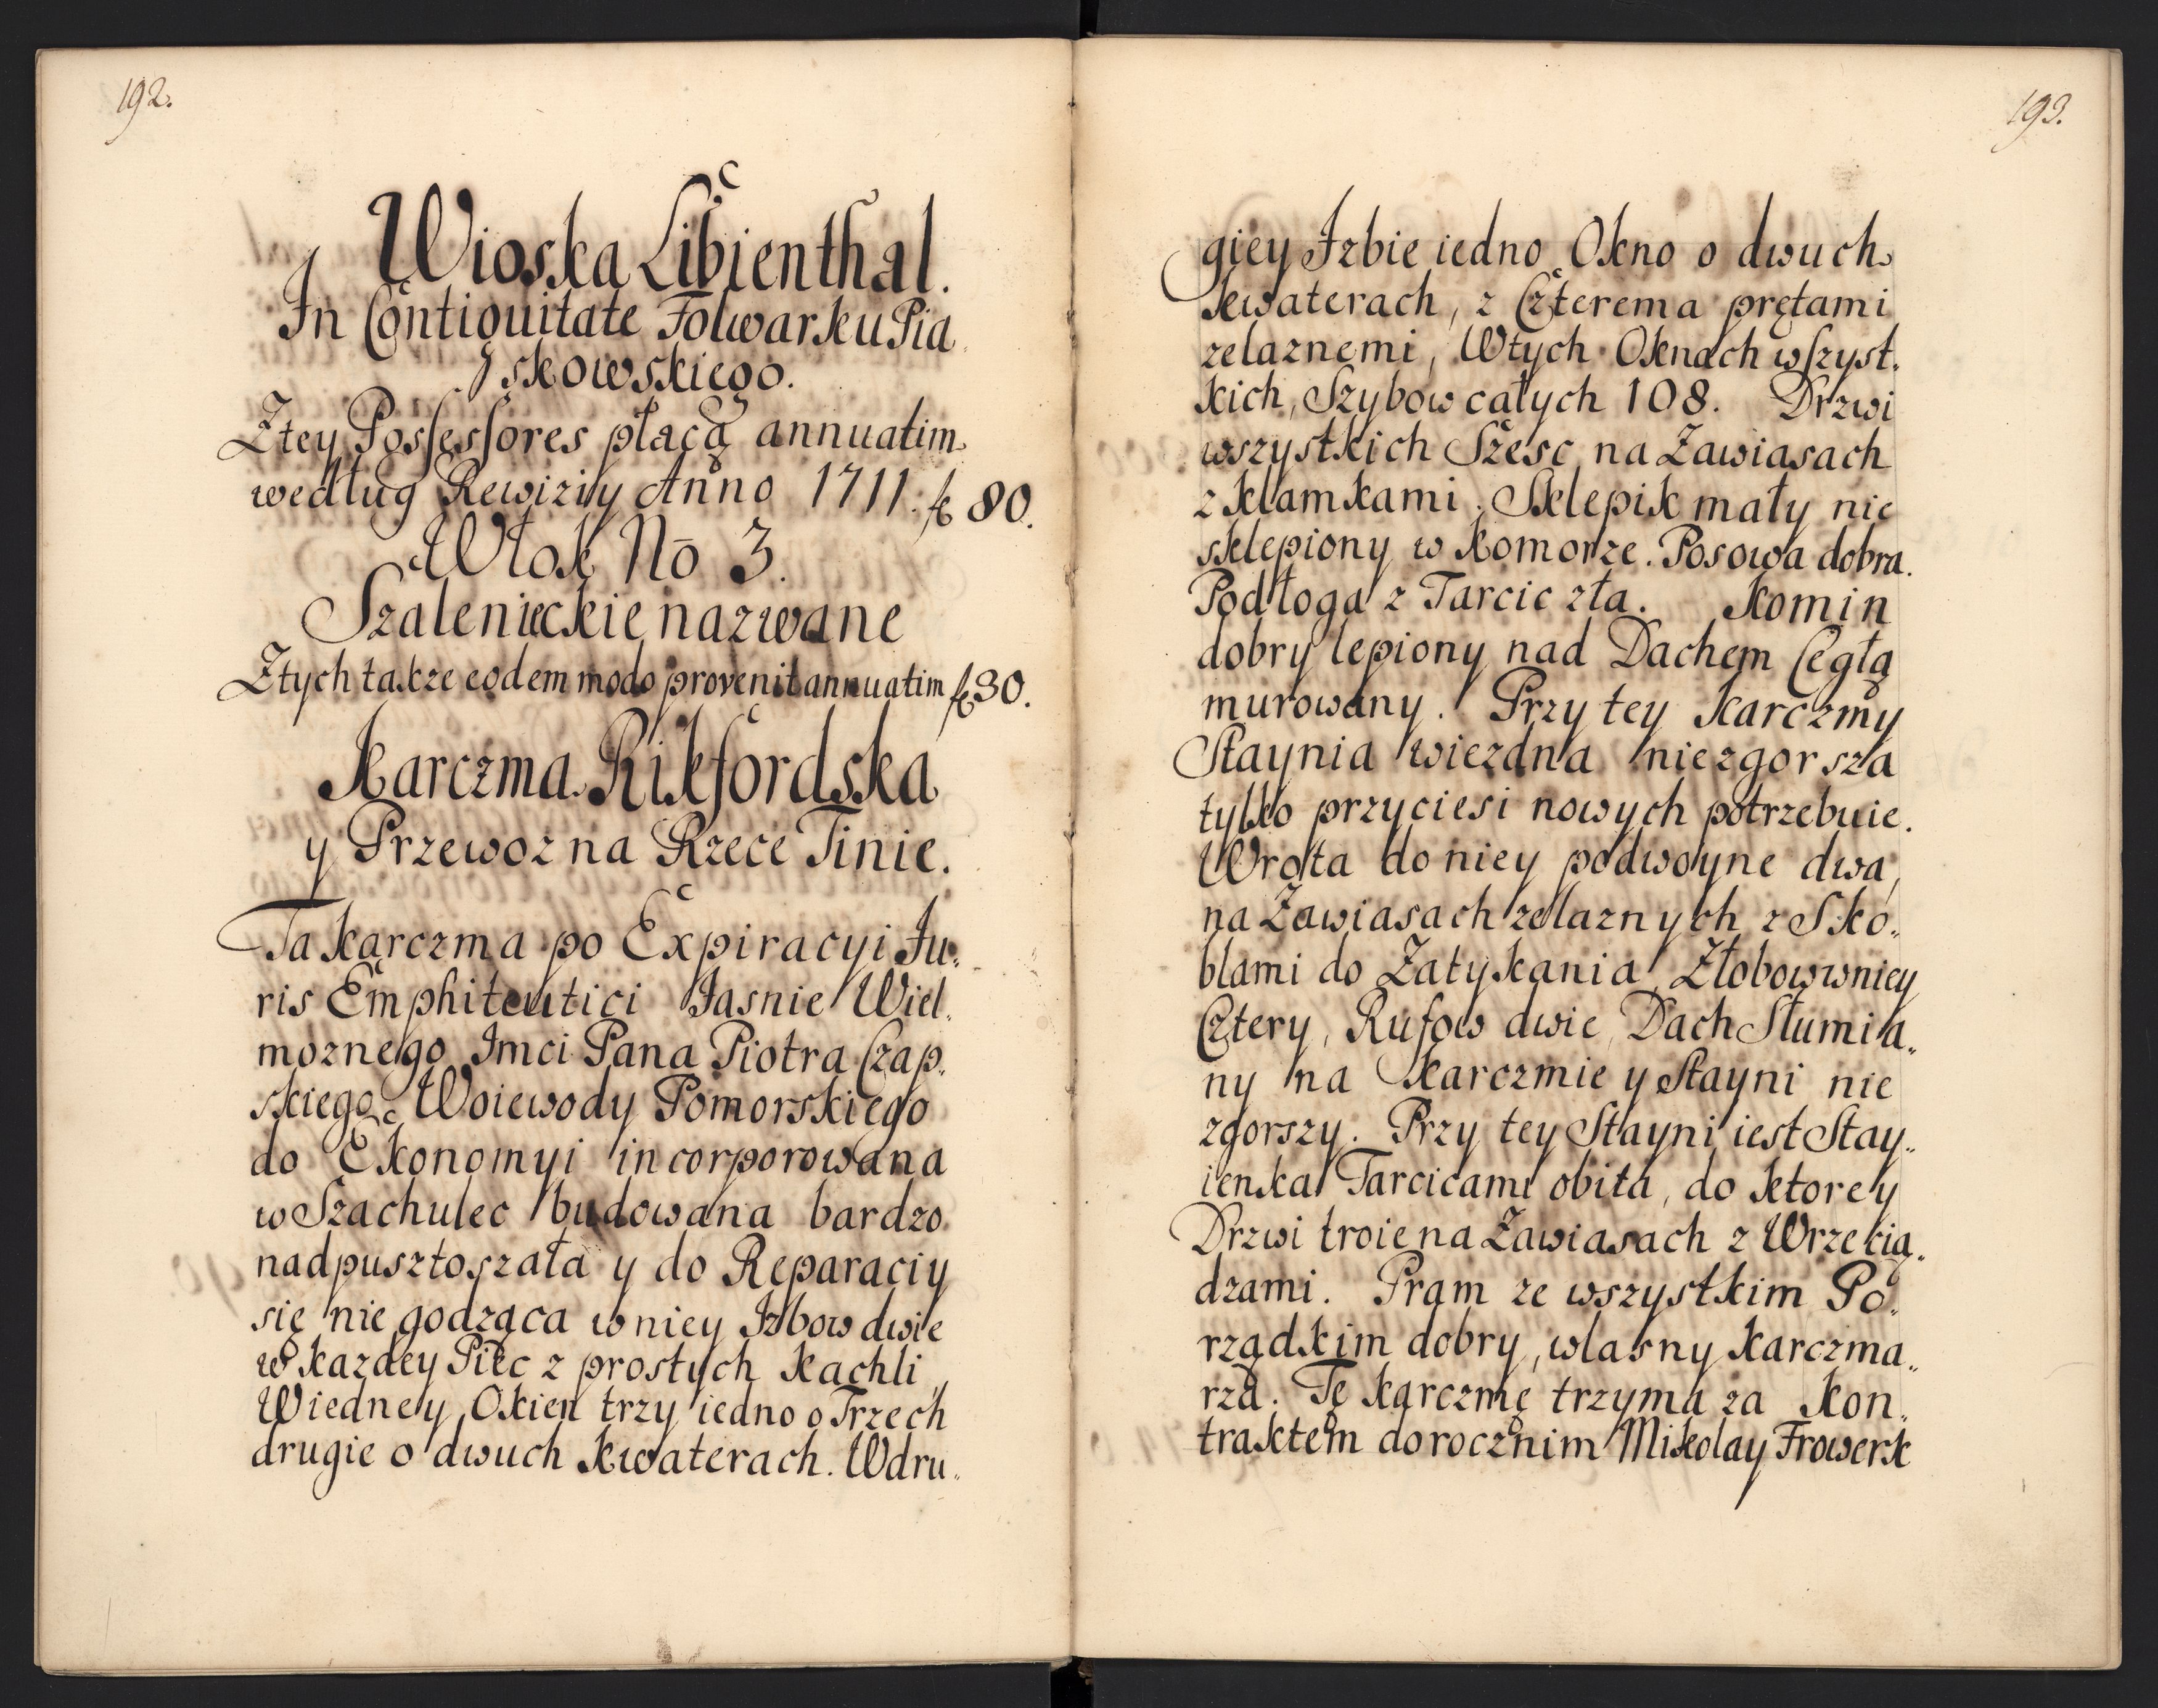 192.
Wioska Libienthal.
In Contiguitate Folwarku Pia„
skowskiego.
Z tey Possessores płacą annuatim
według Rewiziiy Anno 1711. fl 80.
Włok No 3.
Szalenieckie nazwane
Z tych takze eodem modo provenit annuatim fl 30.
Karczma Rikfordska
y Przewoz na Rzece Tinie.
Ta Karczma po Expiracyi Ju„
ris Emphiteutici Jasnie Wiel„
moznego Imci Pana Piotra Czap„
skiego Woiewody Pomorskiego
do Ekonomyi incorporowana
w Szachulec budowana bardzo
nadpusztoszała y do Reparaciy
się nie godząca w niey Izbow dwie
w kazdey Piec z prostych Kachli,
W iedney Okien trzy iedno o Trzech
drugie o dwuch Kwaterach. W dru„
193.
giey Izbie iedno Okno o dwuch
Kwaterach, z Czterema prętami
zelaznemi, W tych Oknach wszyst„
kich, Szybow całych 108. Drzwi
wszystkich Szesc na Zawiasach
z Klamkami. Sklepik mały nie
sklepiony w Komorze. Posowa dobra.
Podłoga z Tarcic zła. Komin
dobry lepiony nad Dachem Cegłą
murowany. Przy tey Karczmy
Staynia wiezdna niezgorsza
tylko przyciesi nowych potrzebuie.
Wrota do niey podwoyne dwa,
na Zawiasach zelaznych z Sko„
blami do Zatykania, Złobow w niey
Cztery, Rufow dwie, Dach Słumia„
ny na Karczmie y Stayni nie
zgorszy. Przy tey Stayni iest Stay„
ienka Tarcicami obita, do Ktorey
Drzwi troie na Zawiasach z Wrzecią„
dzami. Pram ze wszystkim Po„
rządkim dobry, wlasny Karczma„
rza. Tę Karczmę trzyma za Kon„
traktem dorocznim Mikolay Frowerk